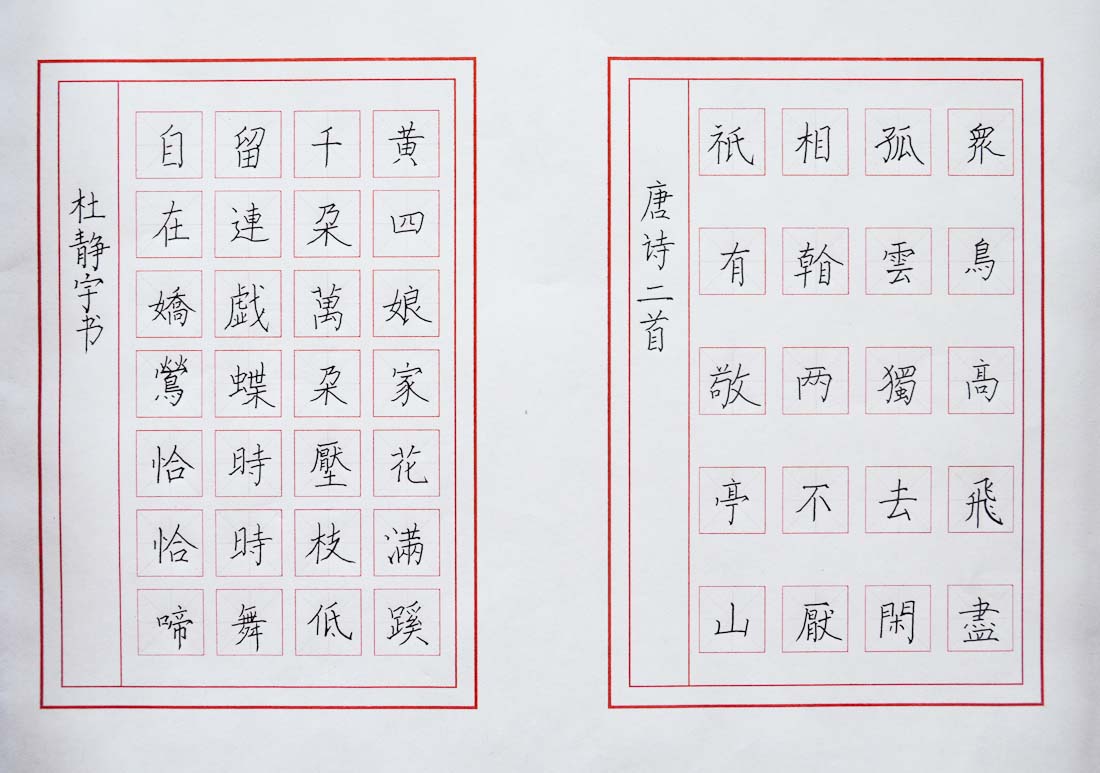 衆鳥高飛盡
孤雲獨去閑
相看两不厭
祇有敬亭山
唐诗二首
黄四娘家花滿蹊
千朵萬朵壓枝低
留連戯蝶時時舞
自在嬌鶯恰恰啼
杜静字书